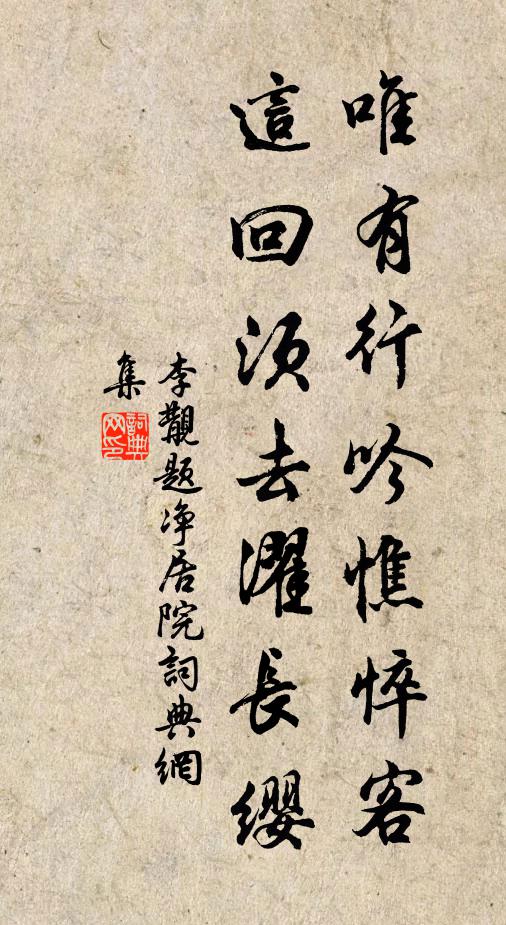 唯有行吟憔悴客
這回須去濯長纓
李觀題净居院詞典網
集
詞典
网印